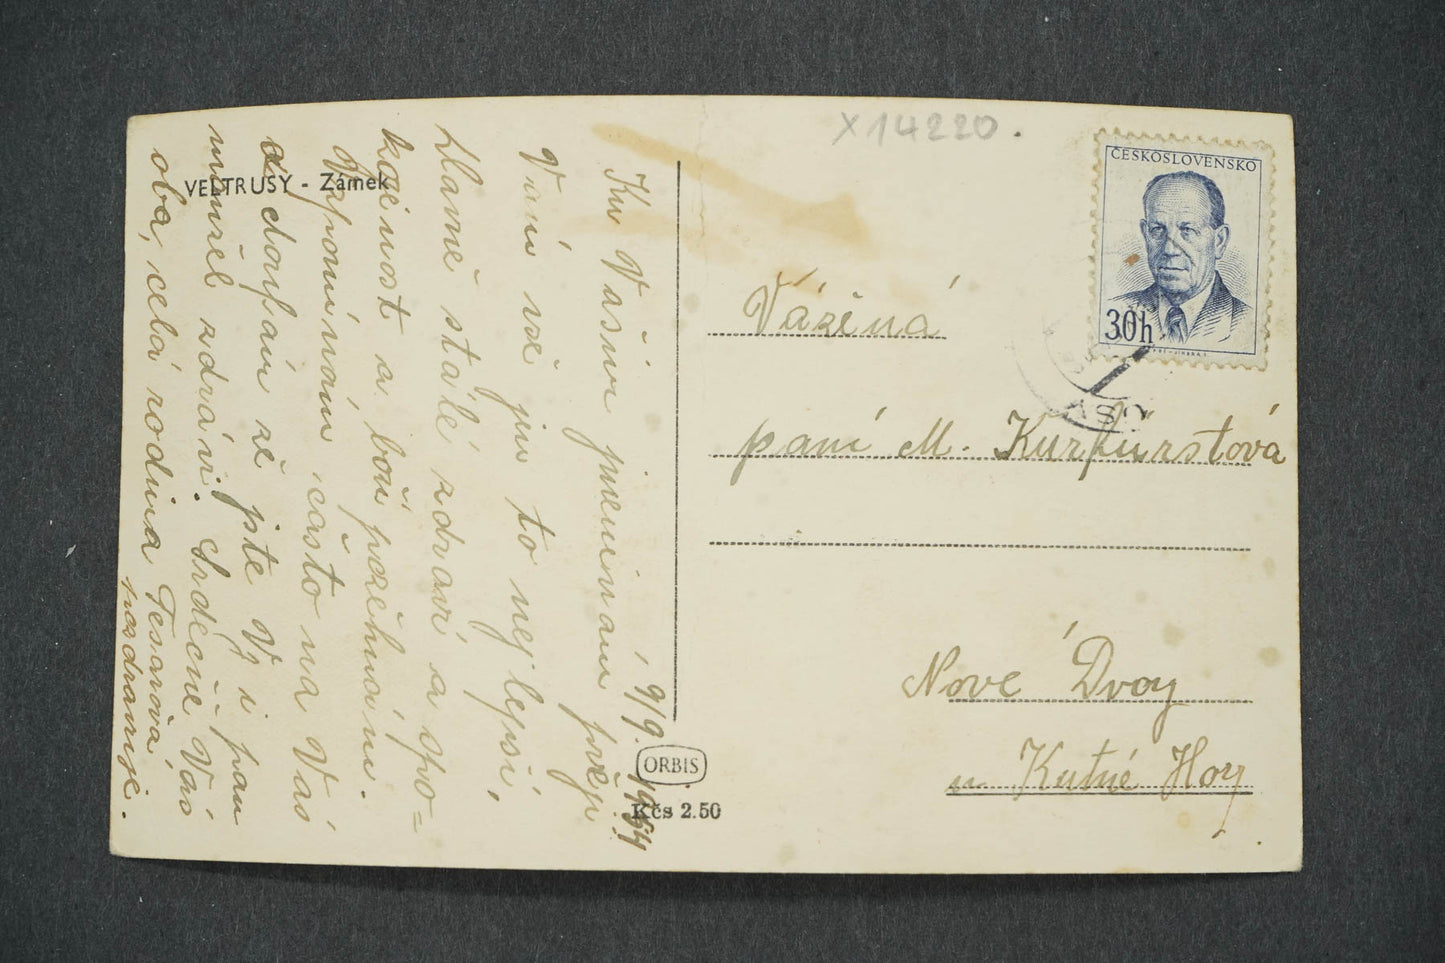 X14220.
ČESKOSLOVENSKO
30h
VELTRUSY - Zámek
9/9. 1954
Ku Vašim jmeninam přeji
Vám vše jen to nejlepší,
hlavně stálé zdraví a spo=
kojenost a boží požehnání.
Vzpomínam často na Vás
a doufám že jste Vy i pan
manžel zdrávi. Srdečně Vás
oba, celá rodina Tesařova
pozdravuje.
Vážená
paní M. Kurfürstová
Nové Dvory
u Kutné Hory
ORBIS
Kčs 2.50